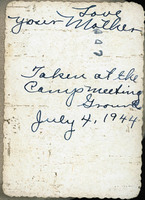 Love
your Mother
Taken at the
Camp meeting
Ground
July 4, 1944